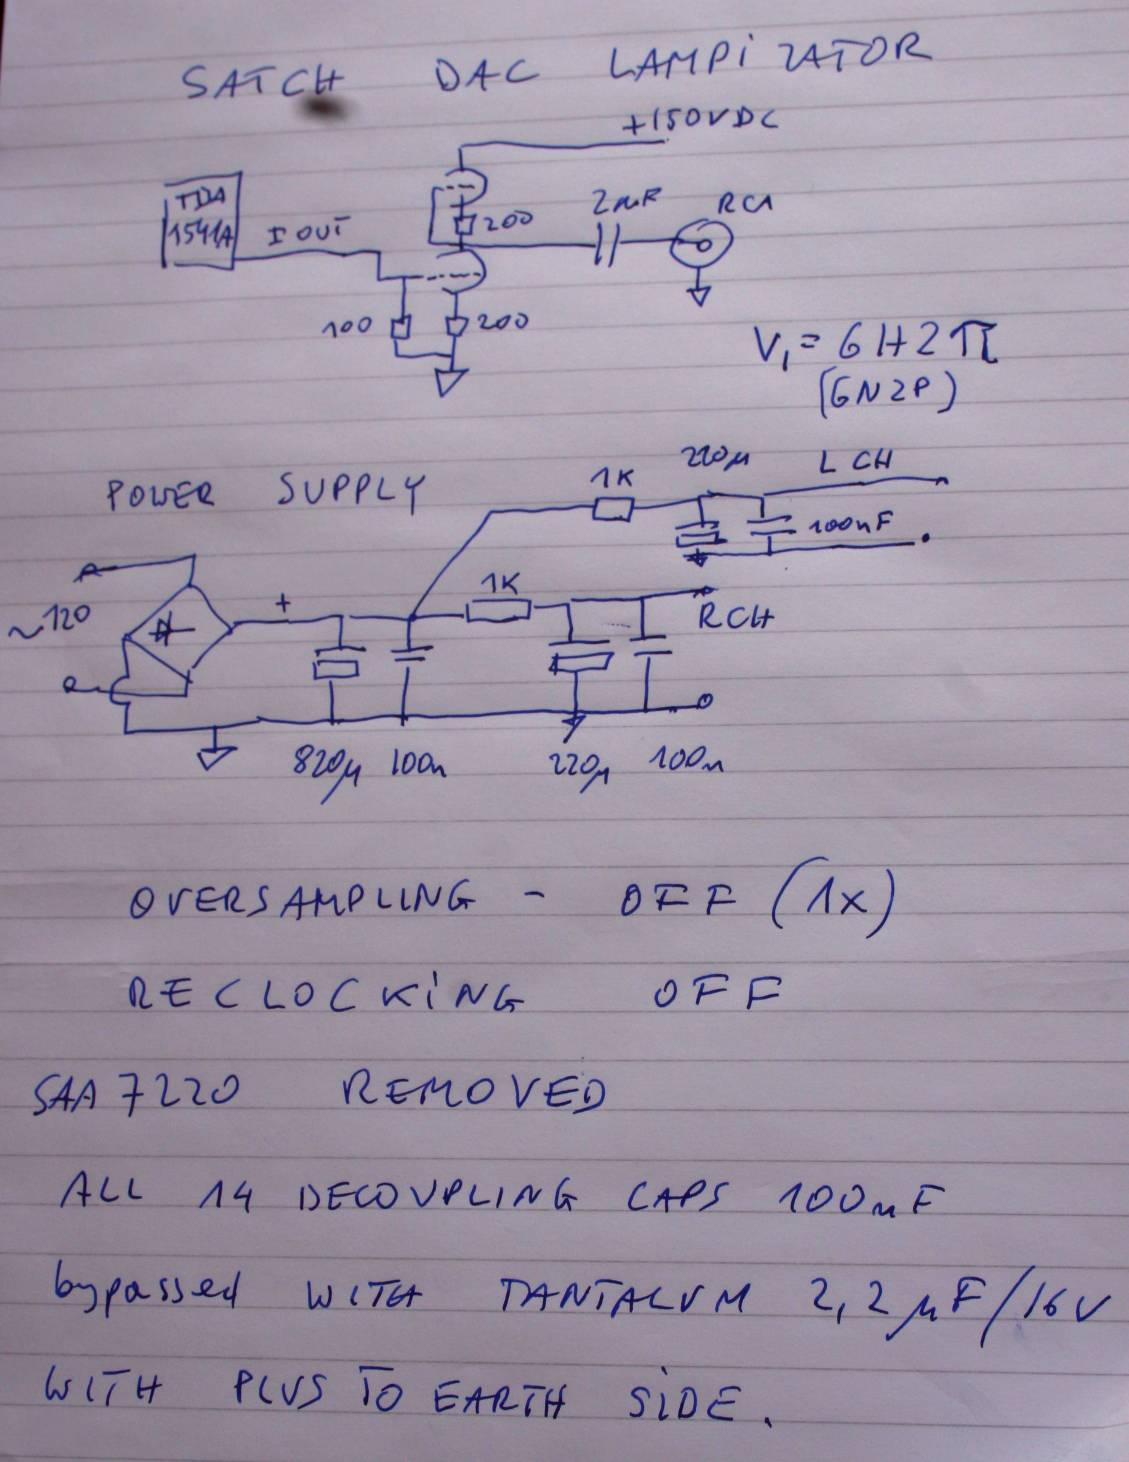 SATCH DAC LAMPiZATOR
+150VDC
TDA
1541A
I OUT
200
2uF
RCA
100
200
V1 = 6Н2П
(6N2P)
POWER SUPPLY
1K
220µ
L CH
100nF
1K
~120
+
R CH
820µ
100n
220µ
100n
OVERSAMPLING - OFF (1x)
RECLOCKiNG OFF
SAA 7220 REMOVED
ALL 14 DECOUPLING CAPS 100nF
bypassed WITH TANTALUM 2,2µF/16V
WITH PLUS TO EARTH SiDE.